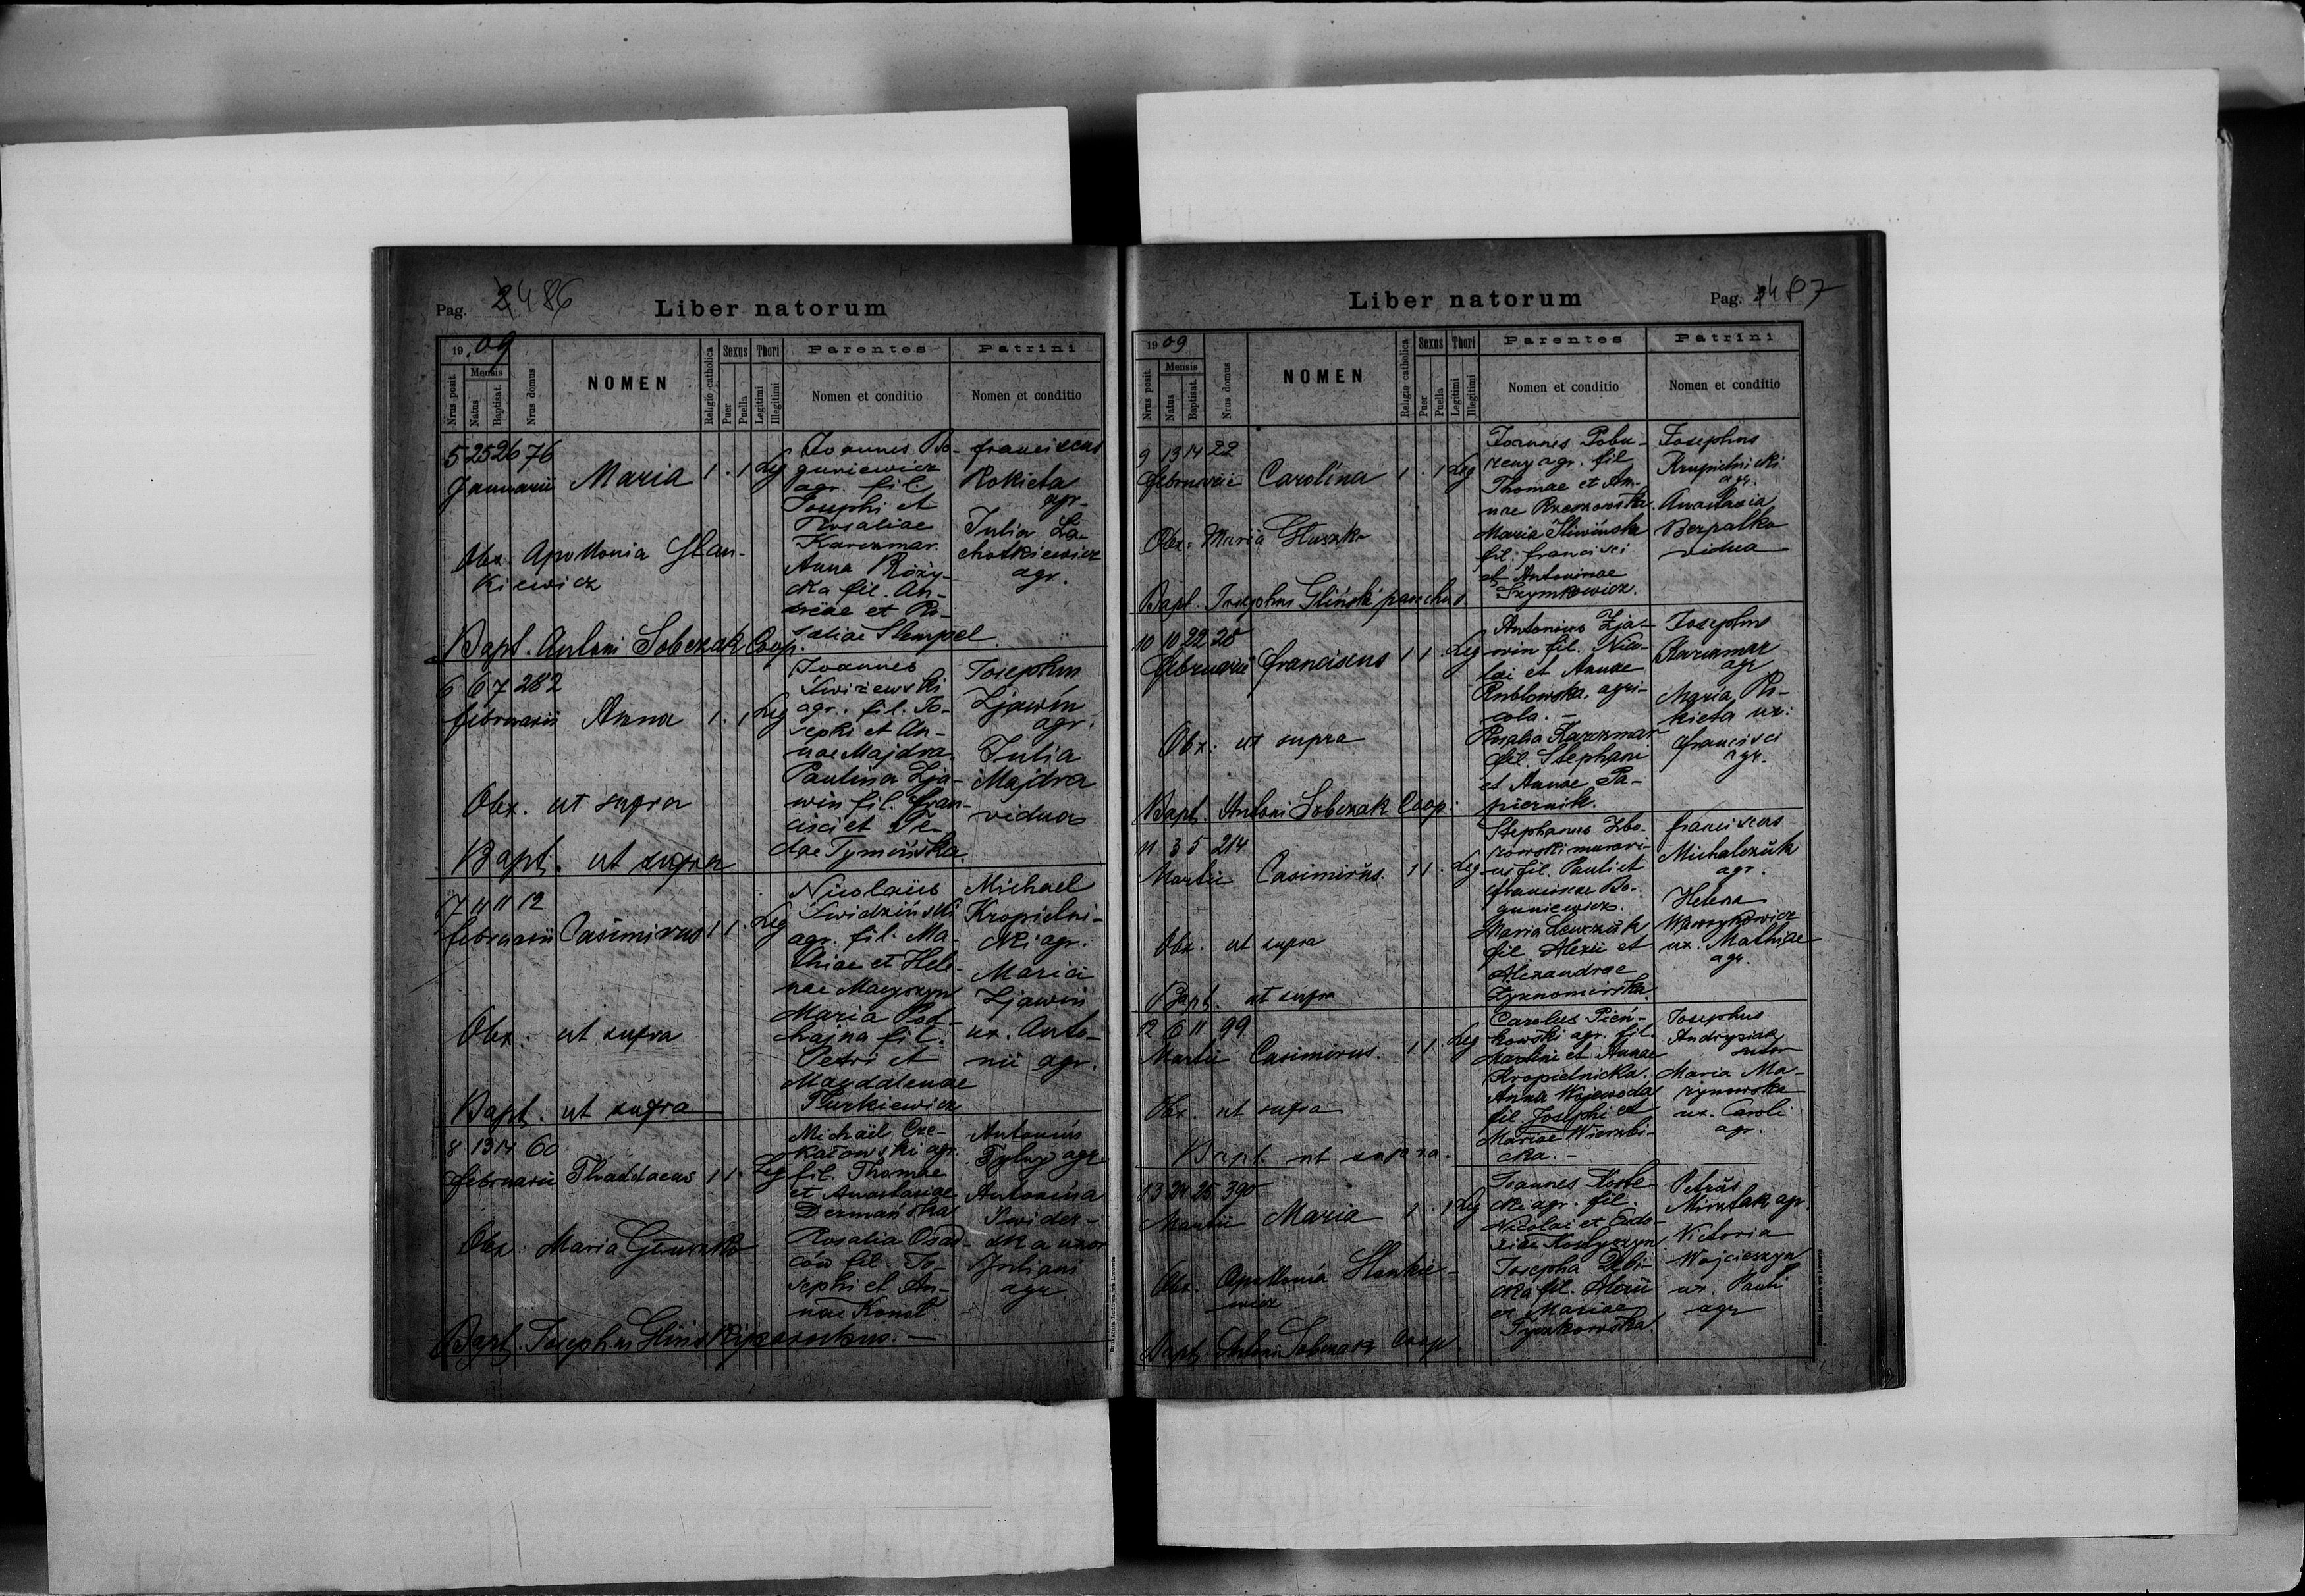 Pag. 486
Liber natorum
1909
Nrus posit.
Mensis
Natus
Baptisat.
Nrus domus
NOMEN
Religio catholica
Sexus
Puer
Puella
Thori
Legitimi
Illegitimi
Parentes
Nomen et conditio
Patrini
Nomen et conditio
5 25 26 76
Januarii Maria 1 . 1 Leg
Obx. Apollonia Slan-
kiewicz
Bapt. Antoni Sobczak Coop.
Joannes Bo-
guniewicz
agr. fil.
Josephi et
Rosaliae
Karczmar.
Anna Róży-
cka fil. An-
dreae et Ro-
saliae Stempel
Franciscus
Rokieta
agr.
Julia La-
chotkiewicz
agr.
6 6 7 282
Februarii Anna 1 . 1 Leg
Obx. ut supra
Bapt. ut supra
Joannes
Swirewski
agr. fil. Jo-
sephi et An-
nae Majdra
Paulina Zja-
win fil. Fran-
cisci et Te-
clae Tymińska
Josephus
Zjawin
agr.
Julia
Majdra
vidua
7 11 11 12
Februarii Casimirus 1 1 . Leg
Obx. ut supra
Bapt. ut supra
Nicolaüs
Swidziński
agr. fil. Ma-
thiae et Hele-
nae
Maria Pod-
hajna fil.
Petri et
Magdalenae
Turkiewicz
Michael
Kropielni-
cki agr.
Maria
Zjawin
ux. Anto-
nii agr.
8 13 14 60
Februarii Thaddaeus 1 1 . Leg
Obx. Maria Głuszko
Bapt. Josephus Gliński parochus.
Michaël Cze-
kałowski agr.
fil. Thomae
et Anastasiae
Dermańska
Rosalia Osad-
ców fil. Jo-
sephi et An-
nae Konat.
Antonius
agr
Antonina
Swider-
ska uxor
Juliani
agr.
Drukarnia Ludowa we Lwowie
Liber natorum
Pag. 487
1909
Nrus posit.
Mensis
Natus
Baptisat.
Nrus domus
NOMEN
Religio catholica
Sexus
Puer
Puella
Thori
Legitimi
Illegitimi
Parentes
Nomen et conditio
Patrini
Nomen et conditio
9 13 14 22
Februarii Carolina 1 . 1 Leg
Obx: Maria Głuszko
Bapt. Josephus Gliński parochus.
Joannes Pobu-
reny agr. fil
Thomae et An-
nae Rzeszowska.
Maria Śliwińska
fil. Francisci
et Antoninae
Szymkowicz.
Josephus
Krupielnicki
agr.
Anastasia
Bezpalko
vidua
10 10 22 25
Februarii Franciscus 1 1 . Leg
Obx: ut supra
Bapt. Antoni Sobczak Coop.
Antonius Zja-
win fil. Nico-
lai et Annae
agri-
cola. -
Rosalia Karczmar
fil. Stephani
et Annae Pa-
piernik.
Josephus
Karczmar
agr
Maria Ro-
kieta ux:
Francisci
agr.
11 3 5 214
Martii Casimirus. 1 1 . Leg
Obx. ut supra
Bapt. ut supra
Stephanus Zbo-
rowski murari-
us fil. Pauli et
Franciscae Bo-
guniewicz.
Maria Lewczuk
fil. Alexii et
Alexandrae
Franciscus
Michalczuk
agr.
Helena
Wawrykowicz
ux. Mathiae
agr.
12 6 11 99
Martii Casimirus. 1 1 . Leg
Obx. ut supra
Bapt. ut supra.
Carolus Pień-
kowski agr. fil.
Martini et Annae
Kropielnicka.
Anna Wojewoda
fil. Josephi et
Mariae Wierzbi-
cka. -
Josephus
sutor
Maria Ma-
zurowska
ux. Caroli
agr.
13 24 25 390
Martii Maria 1 . 1 Leg
Obx. Apollonia Slankie-
wicz
Bapt. Antoni Sobczak Coop.
Joannes Koste-
cki agr. fil.
Nicolai et Eudo-
xiae Kostyszyn
Josepha Dębi-
cka fil. Alexii
et Mariae
Tyszkowska.
Petrus
agr.
Victoria
Wojcieszyn
ux. Pauli
agr
Drukarnia Ludowa we Lwowie